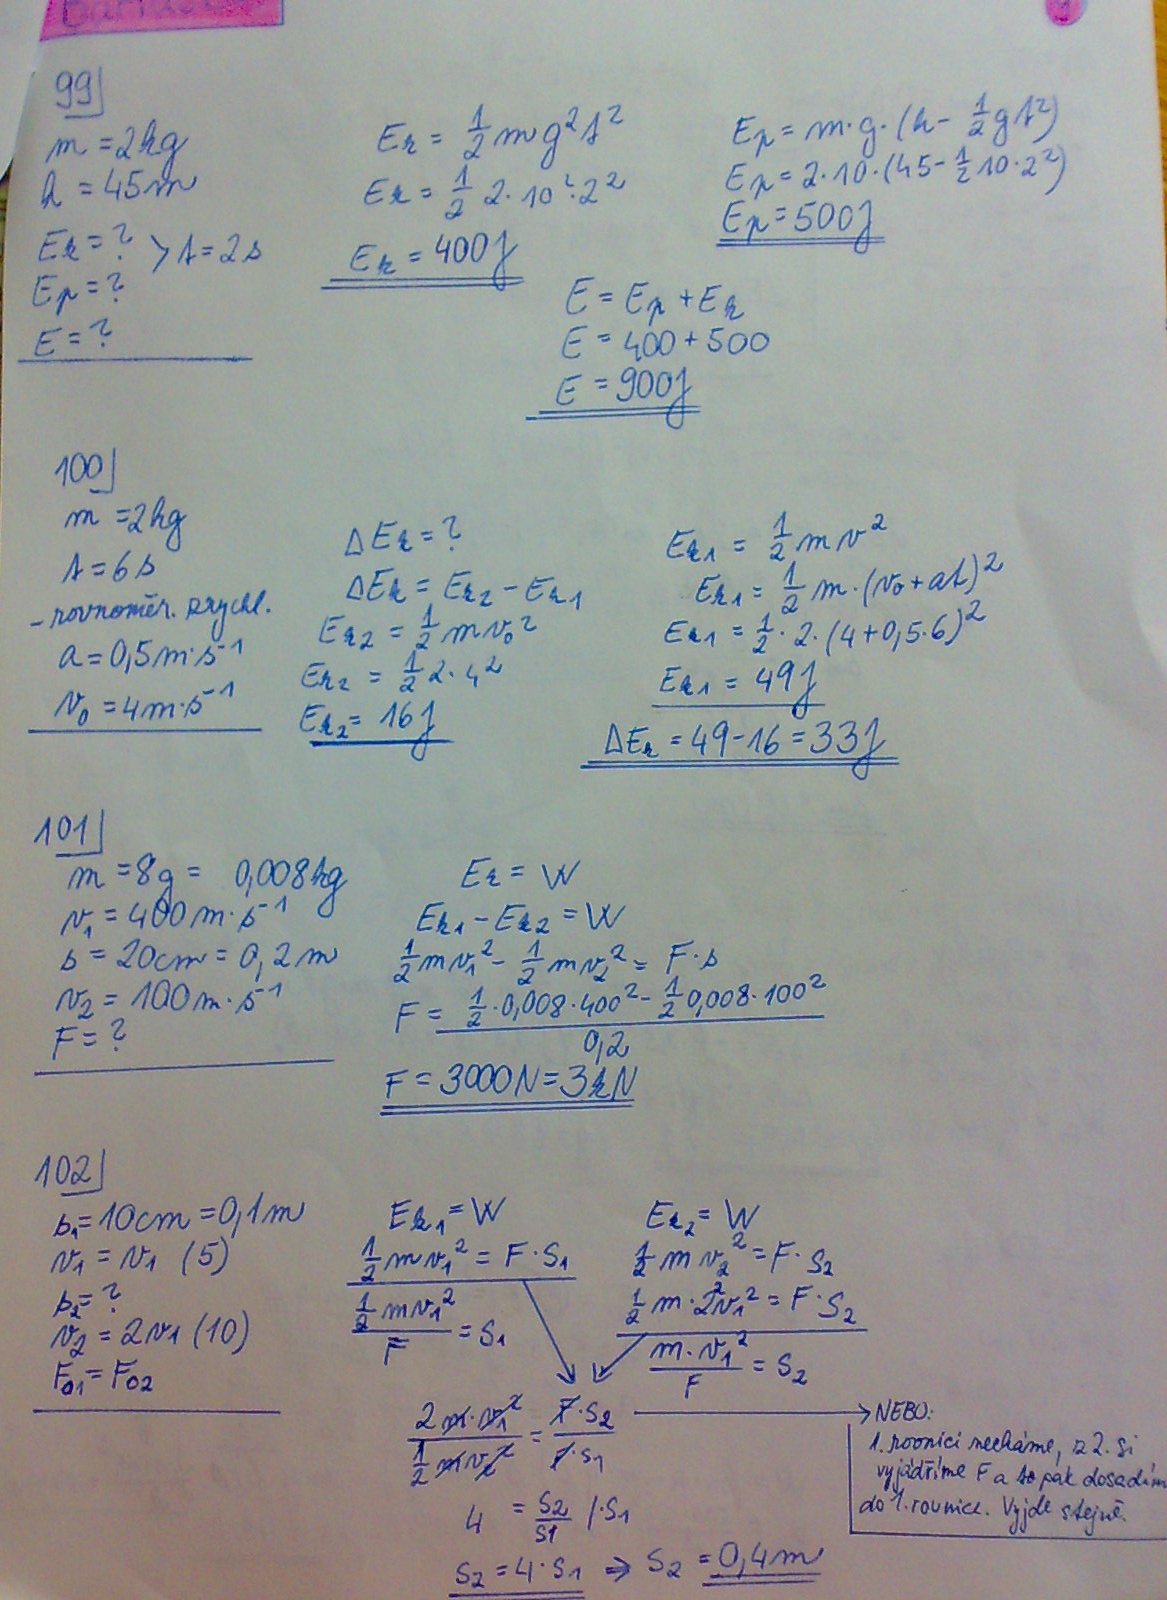 99
m = 2kg
h = 45m
Ek = ?
> t = 2s
Ep = ?
E = ?
Ek = 1/2 m g² t²
Ek = 1/2 2·10²·2²
Ek = 400J
Ep = m·g·(h - 1/2 g t²)
Ep = 2·10·(45 - 1/2 10·2²)
Ep = 500J
E = Ep + Ek
E = 400 + 500
E = 900J
100
m = 2kg
t = 6s
- rovnoměr. zrychl.
a = 0,5m·s⁻¹
v₀ = 4m·s⁻¹
ΔEk = ?
ΔEk = Ek2 - Ek1
Ek2 = 1/2 m v₀²
Ek2 = 1/2 2·4²
Ek2 = 16J
Ek1 = 1/2 m v²
Ek1 = 1/2 m·(v₀ + at)²
Ek1 = 1/2·2·(4+0,5·6)²
Ek1 = 49J
ΔEk = 49 - 16 = 33J
101
m = 8g = 0,008kg
v₁ = 400m·s⁻¹
s = 20cm = 0,2m
v₂ = 100m·s⁻¹
F = ?
Ek = W
Ek1 - Ek2 = W
1/2 m v₁² - 1/2 m v₂² = F·s
F = (1/2·0,008·400² - 1/2 0,008·100²) / 0,2
F = 3000N = 3kN
102
s₁ = 10cm = 0,1m
v₁ = v₁ (5)
s₂ = ?
v₂ = 2v₁ (10)
F₀₁ = F₀₂
Ek1 = W
1/2 m v₁² = F·S₁
(1/2 m v₁²) / F = S₁
Ek2 = W
1/2 m v₂² = F·S₂
1/2 m·2²v₁² = F·S₂
(m·v₁²) / F = S₂
(2 m·v₁²) / (1/2 m v₂²) = (F·S₂) / (F·S₁)
4 = S₂/S₁ /·S₁
S₂ = 4·S₁ ⇒ S₂ = 0,4m
NEBO:
1. rovnici necháme, z 2. si
vyjádříme F a to pak dosadím
do 1. rovnice. Vyjde stejně.